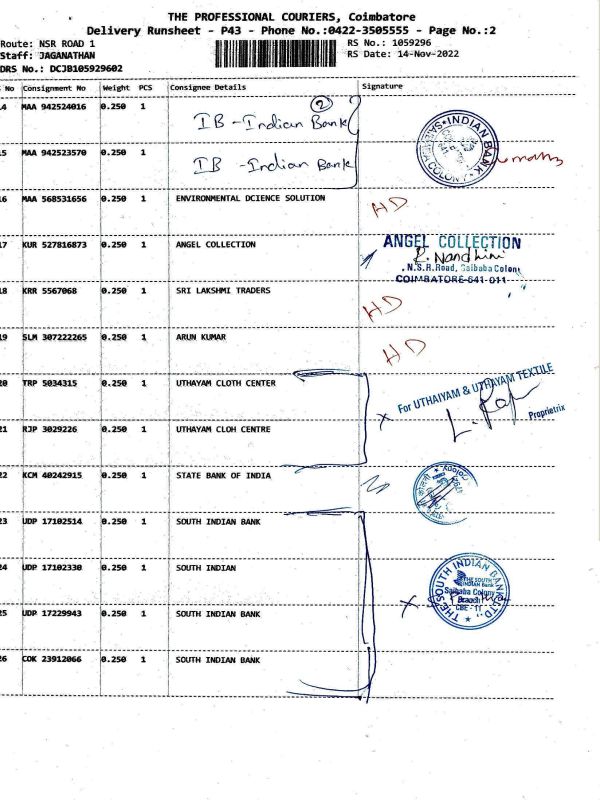 THE PROFESSIONAL COURIERS, Coimbatore
Delivery Runsheet - P43 - Phone No.:0422-3505555 - Page No.:2
Route: NSR ROAD 1
Staff: JAGANATHAN
DRS No.: DCJB105929602
RS No.: 1059296
RS Date: 14-Nov-2022
No Consignment No Weight PCS Consignee Details Signature
4 MAA 942524016 0.250 1 IB - Indian Bank 2
5 MAA 942523570 0.250 1 IB - Indian Bank
INDIAN BANK
COLONY
16 MAA 568531656 0.250 1 ENVIRONMENTAL DCIENCE SOLUTION HD
17 KUR 527816873 0.250 1 ANGEL COLLECTION
ANGEL COLLECTION
R. Nandhini
N.S.R.Road, Saibaba Colony
COIMBATORE-641 011
18 KRR 5567068 0.250 1 SRI LAKSHMI TRADERS HD
19 SLM 307222265 0.250 1 ARUN KUMAR HD
20 TRP 5034315 0.250 1 UTHAYAM CLOTH CENTER
For UTHAIYAM & UTHAYAM TEXTILE
Proprietrix
21 RJP 3029226 0.250 1 UTHAYAM CLOH CENTRE
22 KCM 40242915 0.250 1 STATE BANK OF INDIA
23 UDP 17102514 0.250 1 SOUTH INDIAN BANK
24 UDP 17102330 0.250 1 SOUTH INDIAN
THE SOUTH INDIAN BANK LTD.
THE SOUTH
INDIAN Bank
Saibaba Colony
Branch
CBE - 11
25 UDP 17229943 0.250 1 SOUTH INDIAN BANK
26 COK 23912066 0.250 1 SOUTH INDIAN BANK